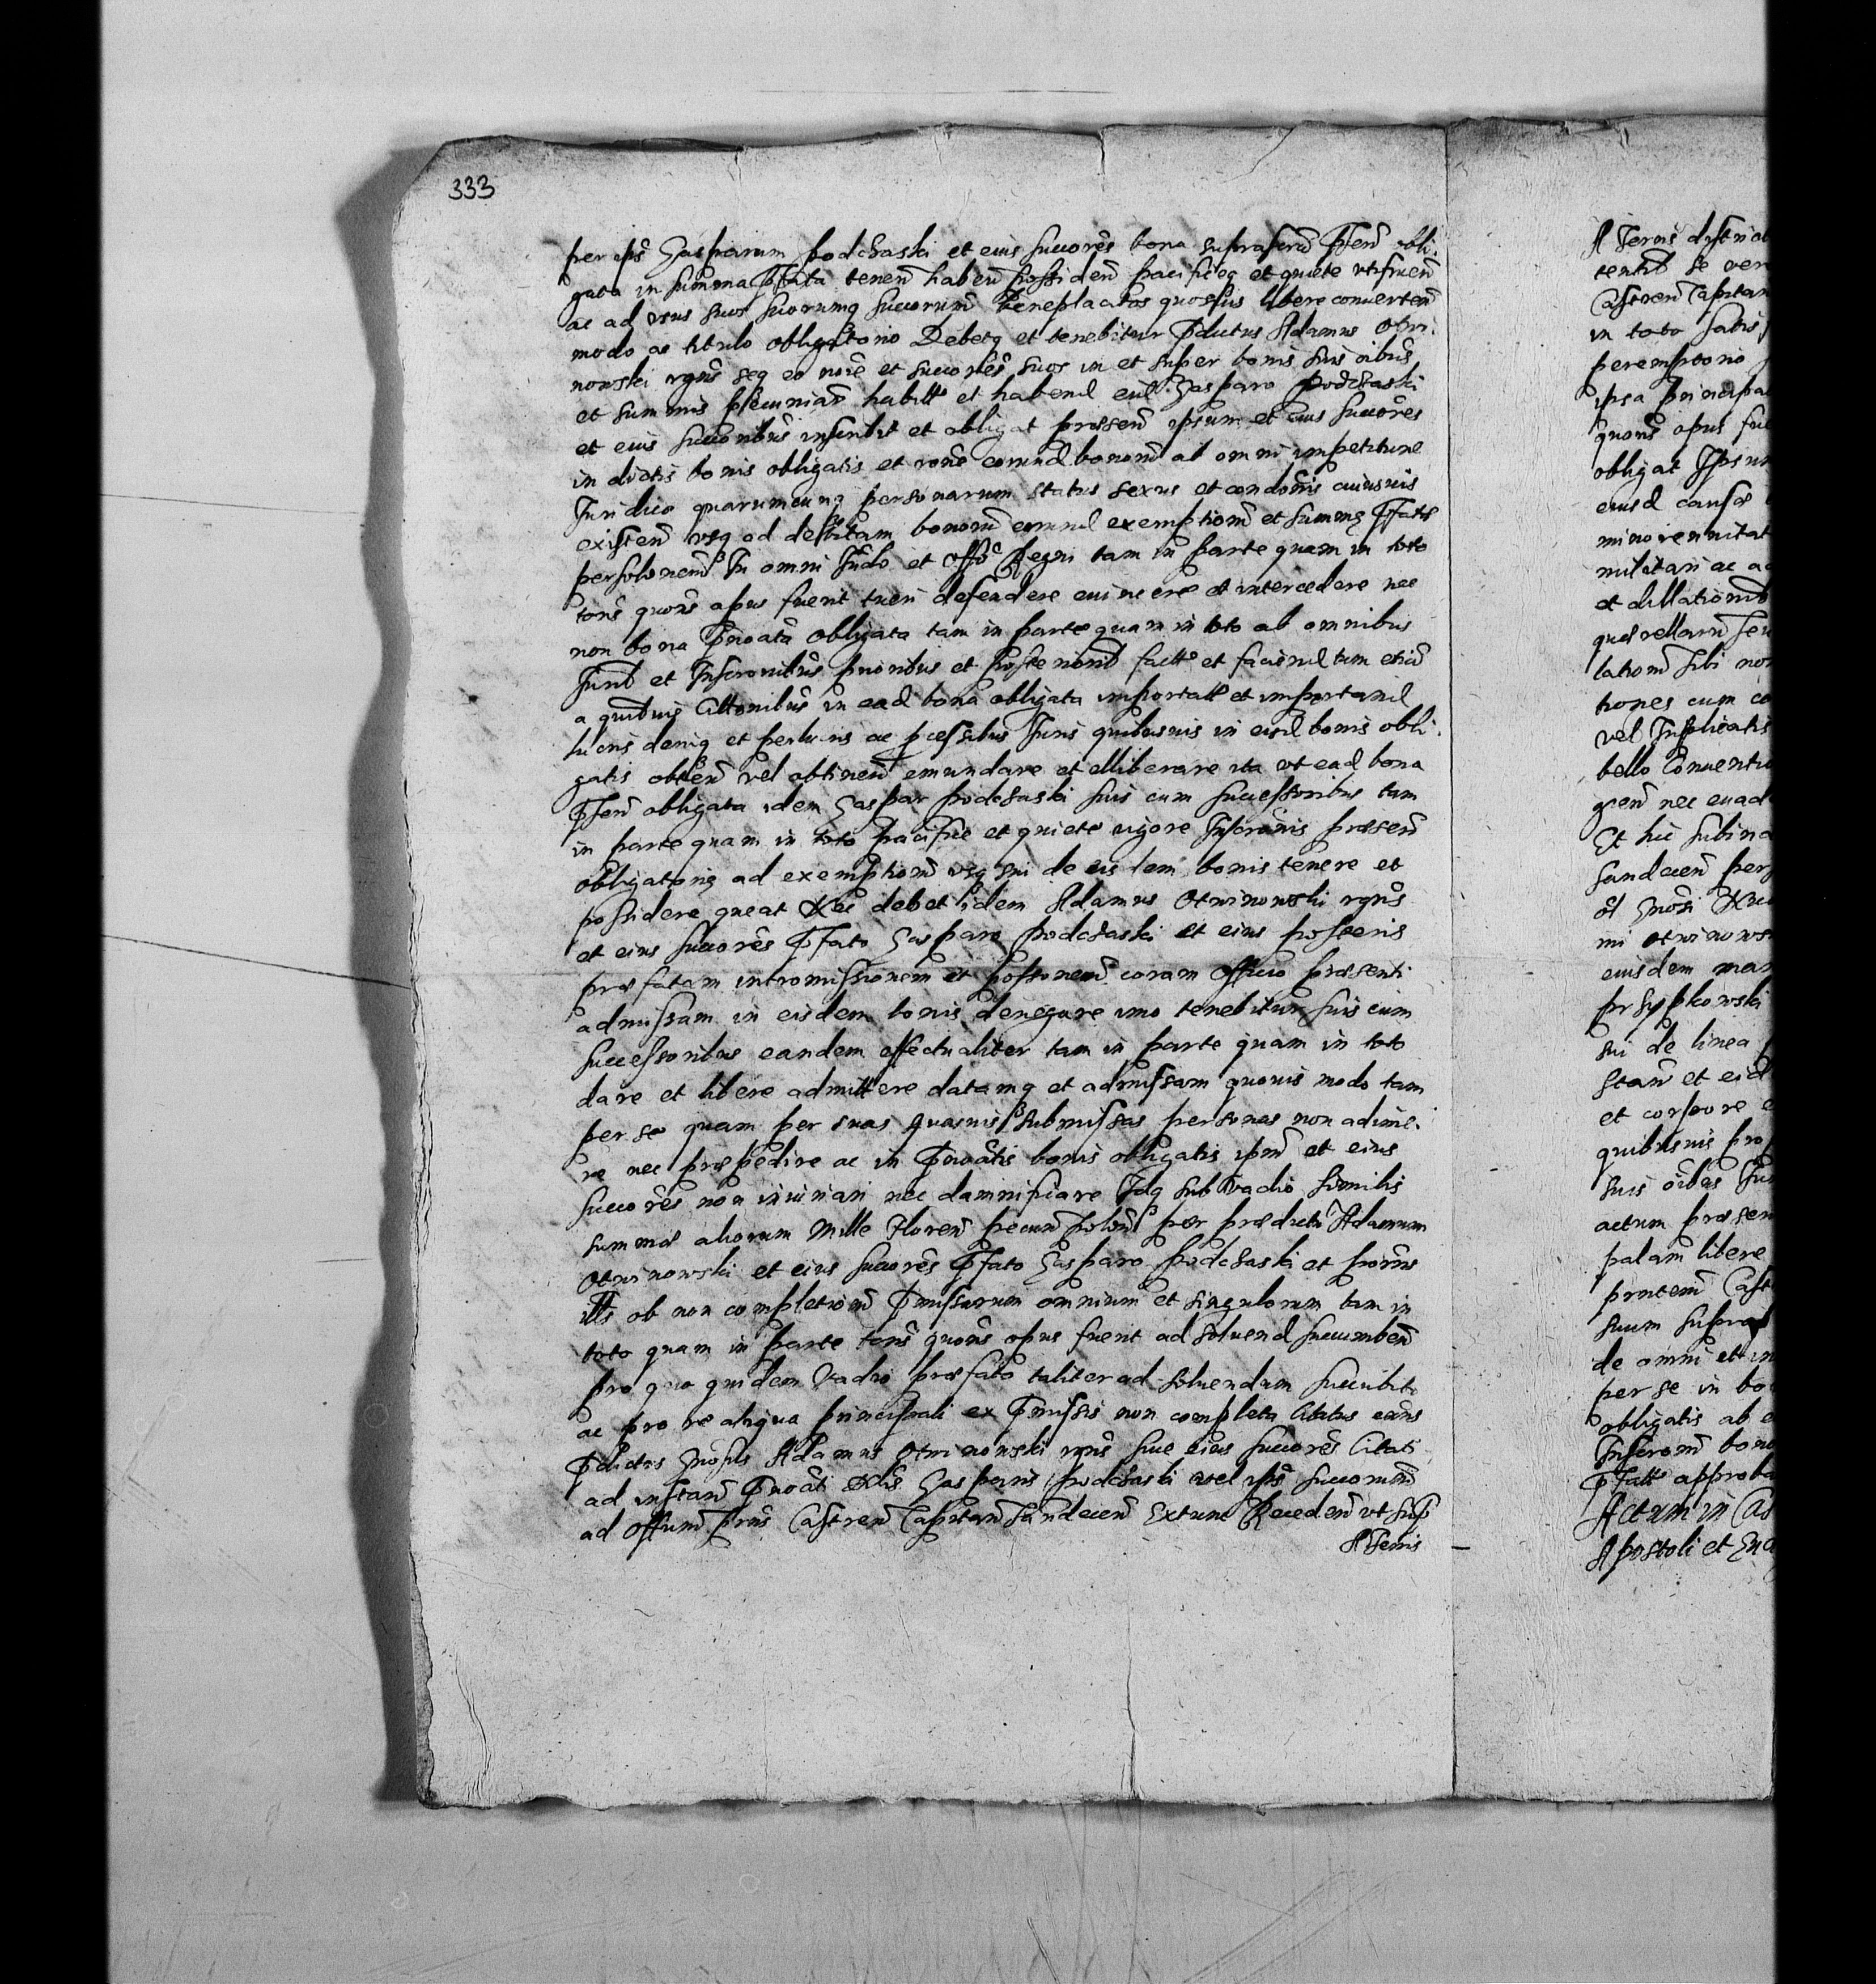 333
per ips Gasparum Podchaski et eius succores bona suprascrip pſen obli-
gata in summa pſata tenen haben possiden pacificeq et quiete utifruen
ac ad usus suos suorumq succorum beneplacitos quosvis libere conuerten
modo ac titulo obligatorio Debetq et tenebitur pdictus Adamus Otwi-
nowski rgns seq eo noie et succores suos in et super bonis suis oibus
et summis pecuniar habitis et habend eid Gasparo Podchaski
et eius succoribus inscribit et obligat prossen ipsum et eius succores
in dictis bonis obligatis et rone eorund bonorum ab omni impetitione
Juridica quarumcunq personarum status sexus et condonis cuiusuis
existen usq ad debitam bonorum eorund exemptionem et summe pſate
persolonem In omni Judo et offo Regni tam in parte quam in toto
tons quons opus fuerit tueri defendere euincere et intercedere nec
non bona pnoata obligata tam in parte quam in toto ab omnibus
Jurib et Inscronibus prioribus et posteriorib factis et faciend tum etiam
a quibuis Cittonibus in ead bona obligata importatis et importand
lucris deniq et perlucris ac pcessibus Juris quibusuis in eisd bonis obli-
gatis obten vel obtinen emundare et elliberare ita ut ead bona
pſen obligata idem Gaspar Podchaski suis cum successoribus tam
in parte quam in toto pacifice et quiete uigore Inscronis prossen
obligatorie ad exemptionem usq sui de eisdem bonis tenere et
possidere queat Nec debet idem Adamus Otwinowski rgns
et eius succores pſato Gasparo Podchaski et eius posteris
præfatam intromissionem et possonem coram officio præsenti
admissam in eisdem bonis denegare imo tenebitur suis cum
successoribus eandem effectualiter tam in parte quam in toto
dare et libere admittere datamq et admissam quouis modo tam
per se quam per suas quasuis submissas personas non adime-
re nec præpedire ac in pnoatis bonis obligatis ipm et eius
succores non iniuriari nec damnificare Idq sub vadio similis
summæ aliorum Mille Floren pecun polon per prædictu Adamum
Otwinowski et eius succores pſato Gasparo Podchaski et poris
illis ob non completionem pmissorum omnium et singulorum tam in
toto quam in parte tons quons opus fuerit ad soluend succumben
pro quo quidem Vadio præfato taliter ad soluendum succubito
ac pro re aliqua principali ex pmissis non completa Citatus eius
pdictus Adamus Otwinowski rgns siue eius succores Citati
ad instan pnoati Gasparis Podchaski vel ips succorum
ad officium prns Castren Capitan Sandecen Extunc Receden ut sup
A Terris

A Terris district
tentib se ver
Castren Capitan
in toto satis
peremptorio
ipsa principa
quons opus fue
obligat Ipsum
eiusd causæ
minorennitat
militari ac a
et dillationib
querellarum seu
lationum sibi non
tiones cum co
vel Inplicatis
bello Conuentu
gen nec euad
Et hic subina
Sandecen per
mi Otwinows
eiusdem mar
Przypkowski
sui de linea
Stan et eid
et corpore
quibusuis pro
suis oibus Ju
actum præsen
palam libere
prntem Cast
suum suprad
de omni et in
per se in bo
obligatis ab
Inscrom bono
pſatt approba
Actum in Cas
Apostoli et Eua